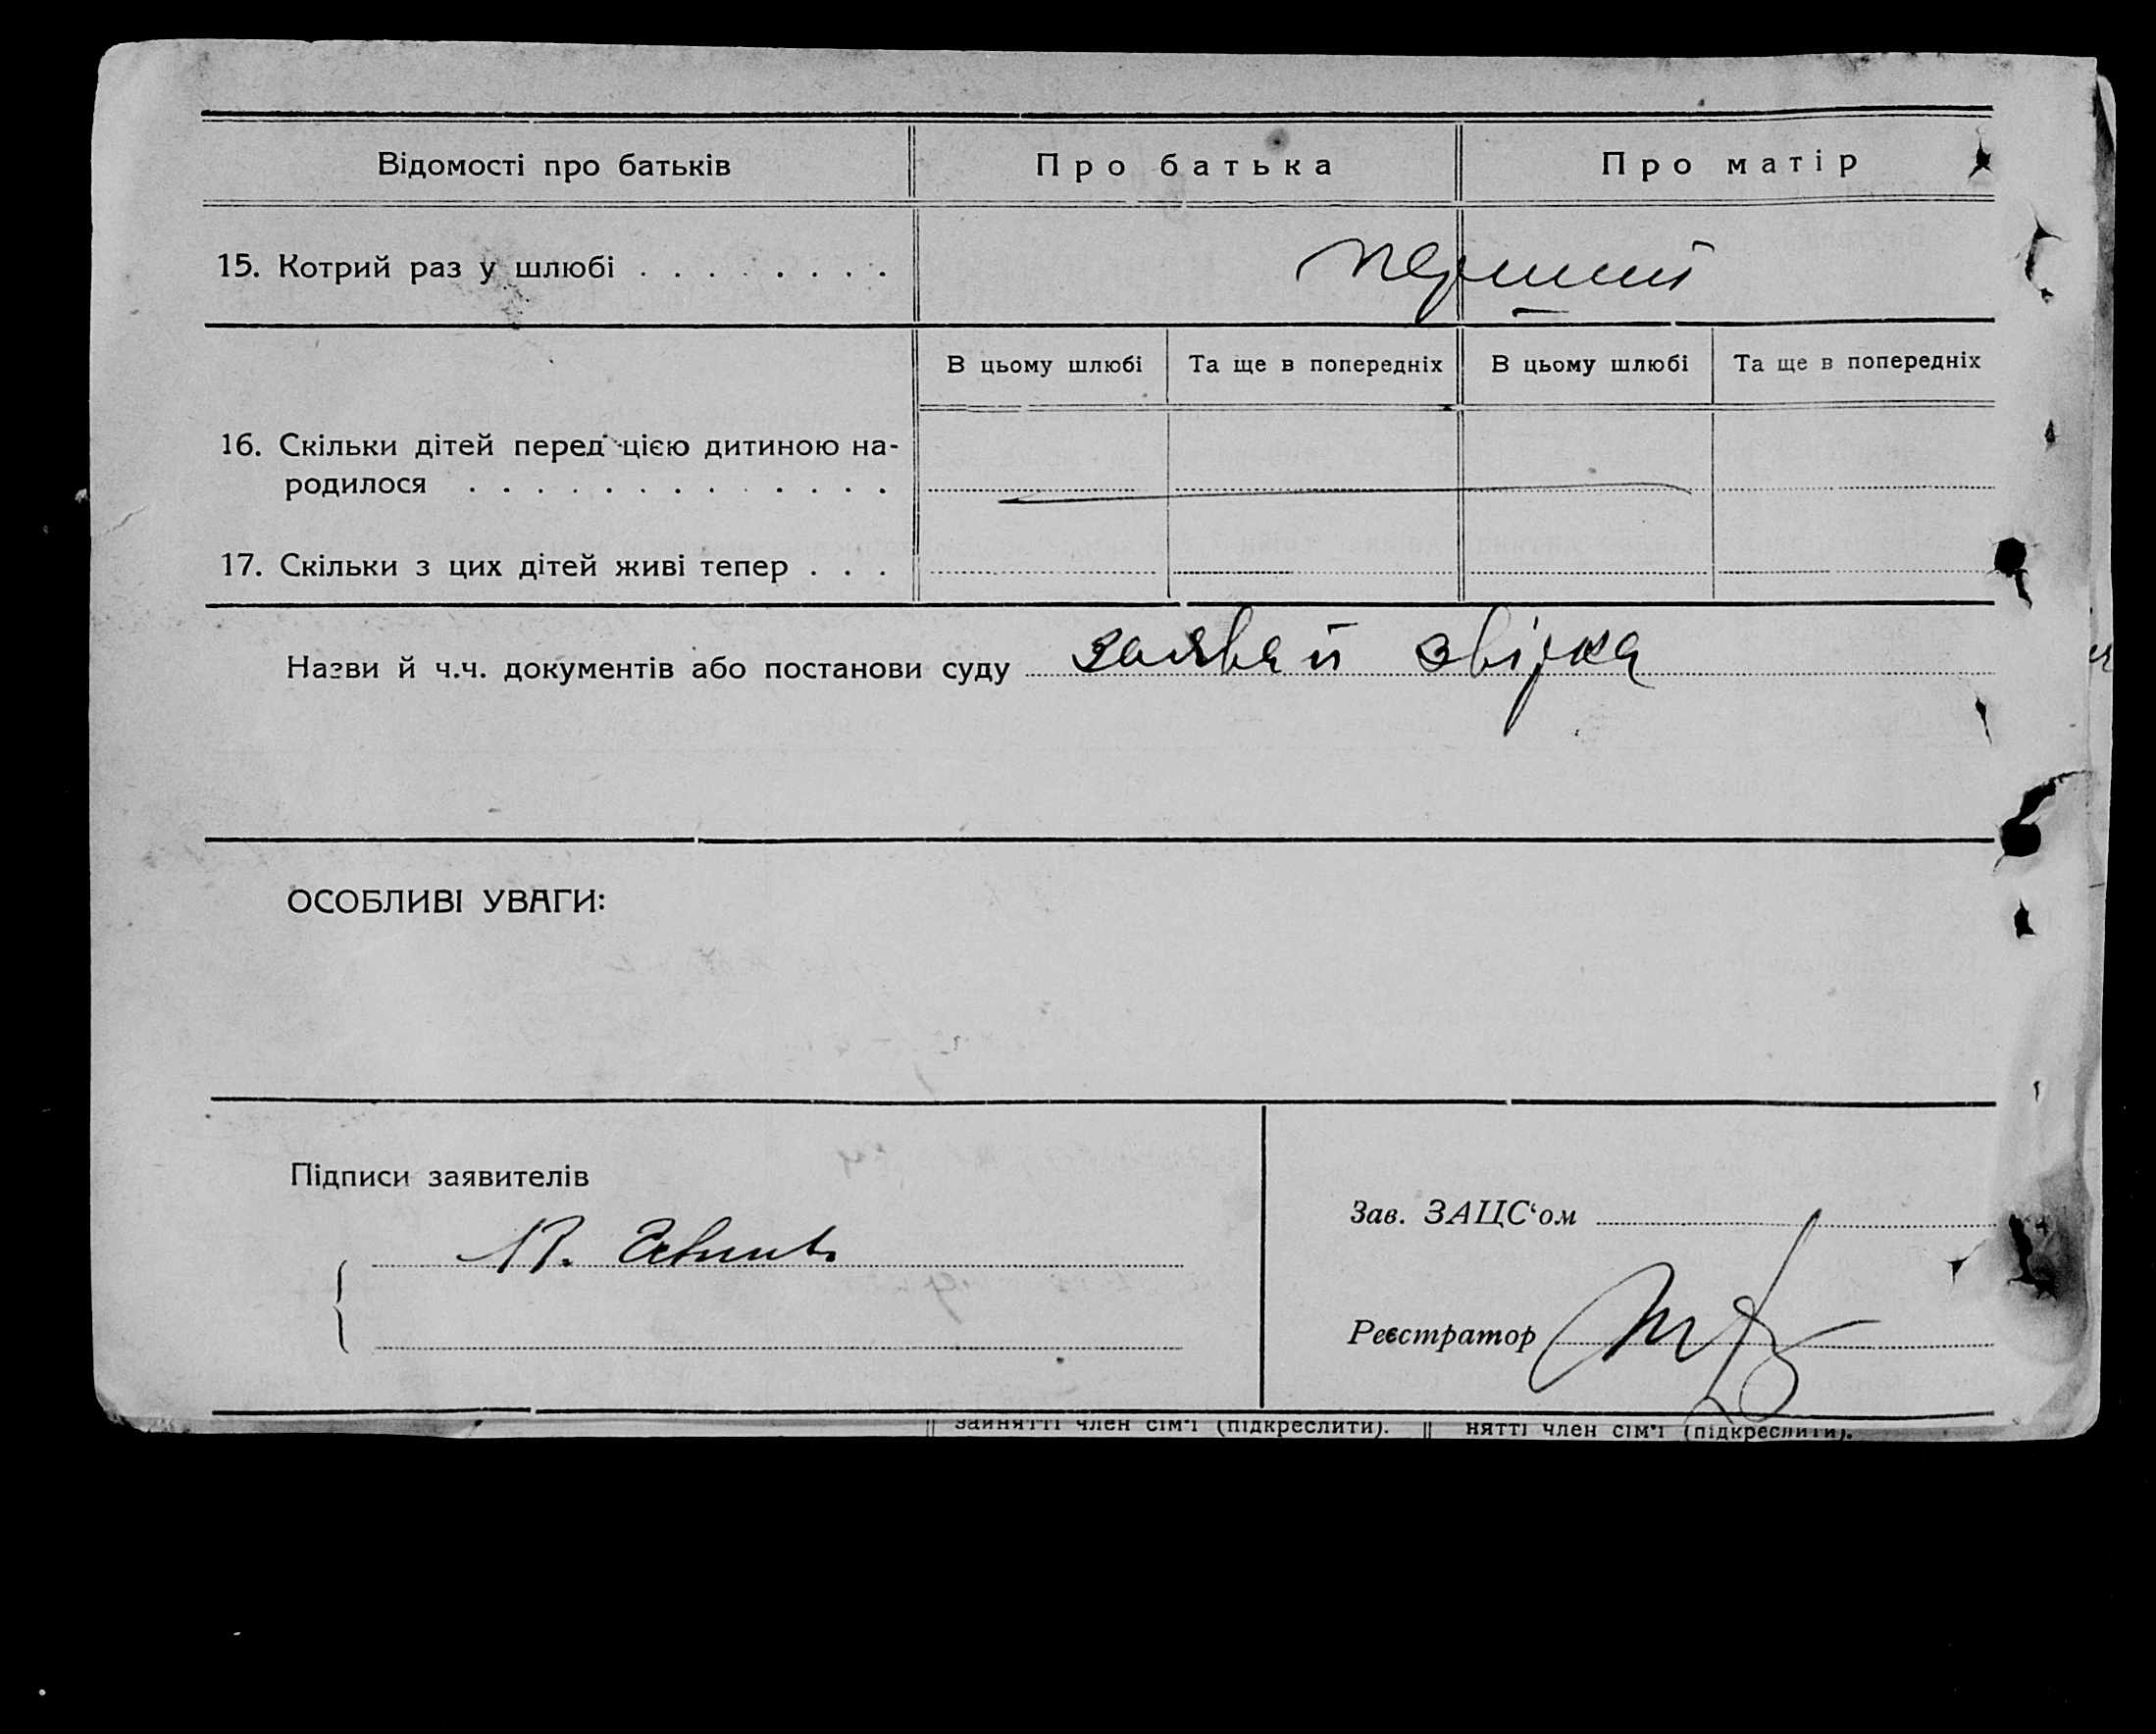 Відомості про батьків Про батька Про матір
15. Котрий раз у шлюбі . . . . . . . . перший
В цьому шлюбі Та ще в попередніх В цьому шлюбі Та ще в попередніх
16. Скільки дітей перед цією дитиною на-
родилося . . . . . . . . . . . . .
17. Скільки з цих дітей живі тепер . . .
Назви й ч.ч. документів або постанови суду заява й звірка
ОСОБЛИВІ УВАГИ:
Підписи заявителів
Зав. ЗАЦС‘ом
Реєстратор
зайнятті член сім‘ї (підкреслити). нятті член сім‘ї (підкреслити).